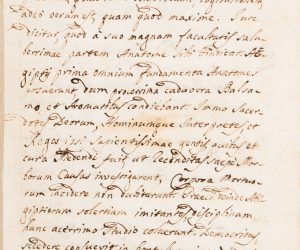 adeò veranes, quam quod maxime. Jure
dicitur quod à suo magnam facultatis salu
berrimae partem Anatome sibi vindicat. Ae
giptii prima omnium fundamenta Anatomes
posuerunt, dum procerima cadavera Balsa
mo et Aromatibus condiebant. Immo Sacer
dotes Deorum, Hominumque Interpretes et
Reges illi sapientissimae gentis, quibus et
cura Medendi fuit ut reconditas saepe Mor
borum Causas investigarent, Corpora Mortuo
rum incidere non dubitarunt. Graeci deinde Ae
giptiorum solertiam imitantes, disciplinam
hanc acerrimo studio coluerunt. Democritus
secedere consuevit in